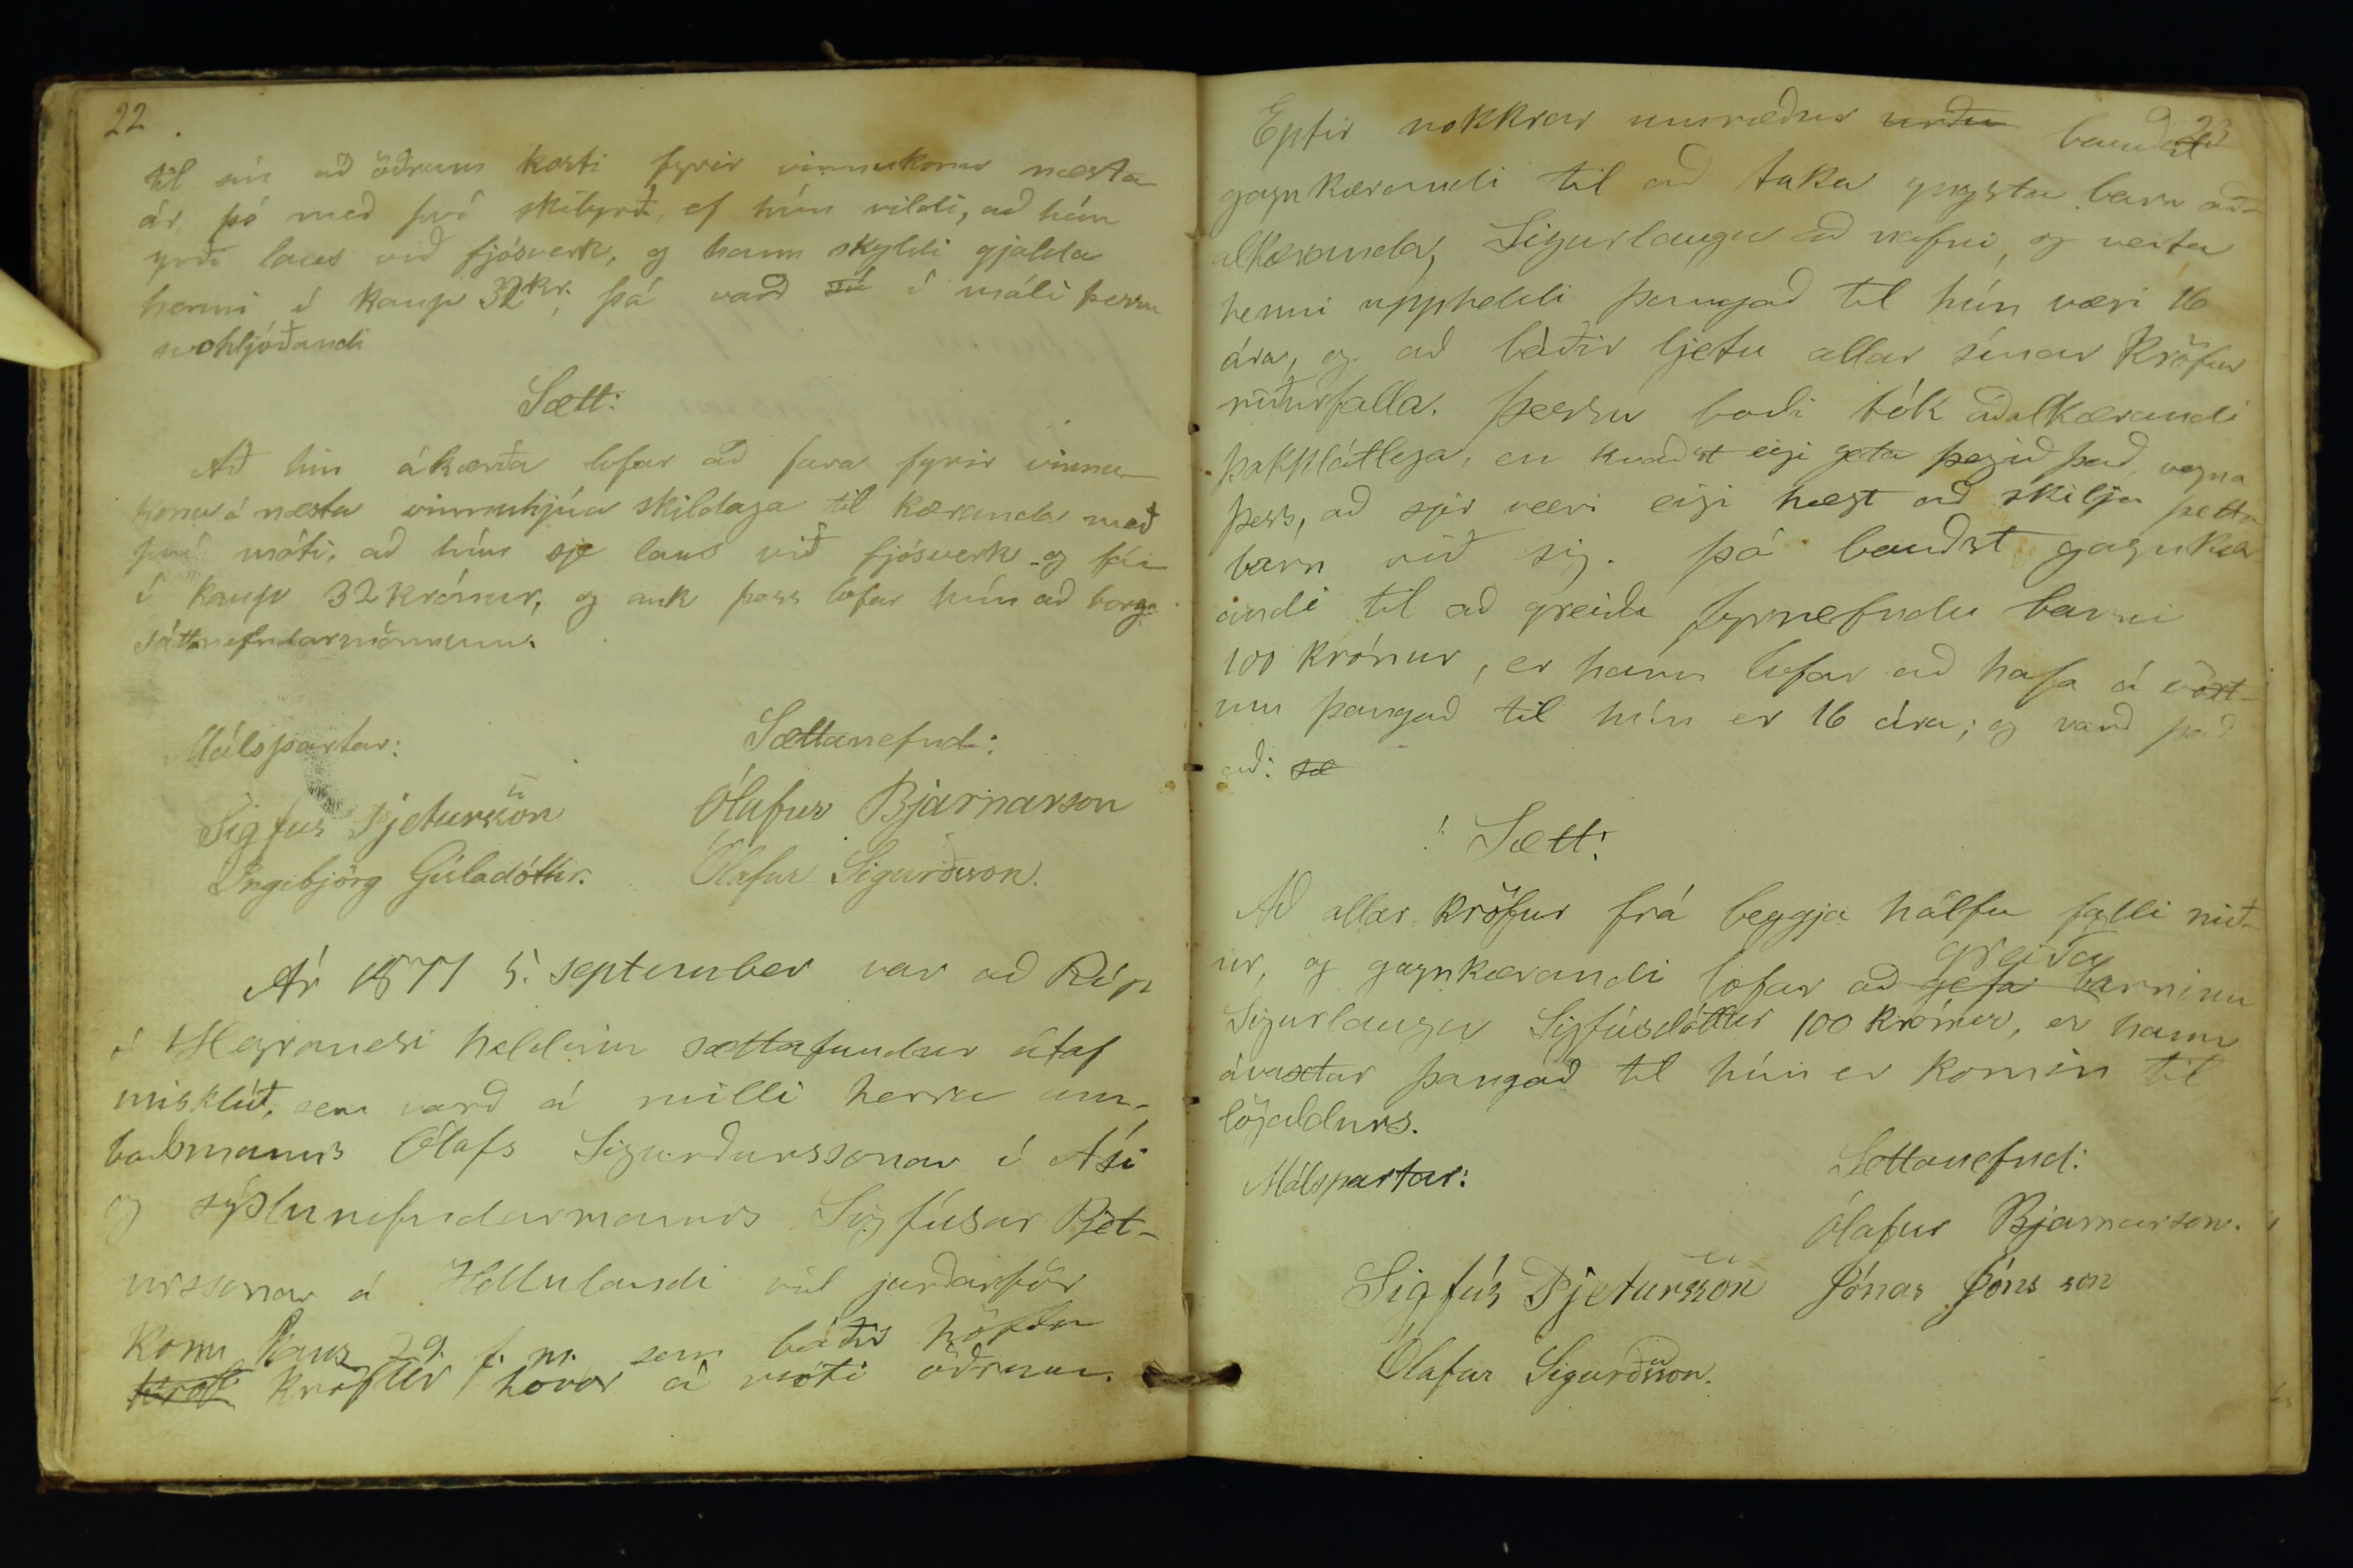 22.
til sín að öðrum kosti fyrir vinnukonu næsta
ár, þó með því skilyrði, ef hún vildi, að hún
yrði laus við fjósverk, og hann skyldi gjalda
henni í kaup 32 kr., þá varð sú í máli þessu
svohljóðandi
Sætt:
Að hin ákærða lofar að fara fyrir vinnu-
konu á næsta vinnuhjúa skildaga til kæranda með
því móti, að hún sje laus við fjósverk og fái
í kaup 32 krónur, og auk þess lofar hún að borga
sáttanefndarmönnum.
Málspartar:
Sættanefnd:
Sigfús Pjetursson
Ólafur Bjarnarson
Ingibjörg Gísladóttir.
Ólafur Sigurðsson.
Ár 1877 5. september var að Ríp
í Hegranesi haldinn sættafundur útaf
misklíð, sem varð á milli herra um-
boðsmanns Ólafs Sigurðurssonar í Ási
og sýslunefndarmanns Sigfúsar Pjet-
urssonar á Hellulandi við jarðarför
konu hans 29. f. m. sem báðir höfðu
kröfur hvor á móti öðrum.
23
Eptir nokkrar umræður urðu bauðst
gagnkærandi til að taka yngsta barn að-
alkæranda, Sigurlaugu að nafni, og veita
henni uppheldi þangað til hún væri 16
ára, og að báðir ljetu allar sínar kröfur
niðurfalla. Þessu boði tók aðalkærandi
þakklátlega, en kvaðst eigi geta þegið það, vegna
þess, að sjer væri eigi hægt að skilja þetta
barn við sig. Þá bauðst gagnkær-
andi til að greiða fyrnefndu barni
100 krónur, er hann lofar að hafa á vöxt-
um þangað til hún er 16 ára; og varð það
að: sæ
Sætt:
Að allar kröfur frá beggja hálfu falli nið-
ur, og gagnkærandi lofar að gefa greiða barninu
Sigurlaugu Sigfúsdóttur 100 krónur, er hann
ávaxtar þangað til hún er komin til
lögaldurs.
Málspartar:
Sættanefnd:
Ólafur Bjarnarson.
Sigfús Pjetursson
Jónas Jónsson
Ólafur Sigurðsson.